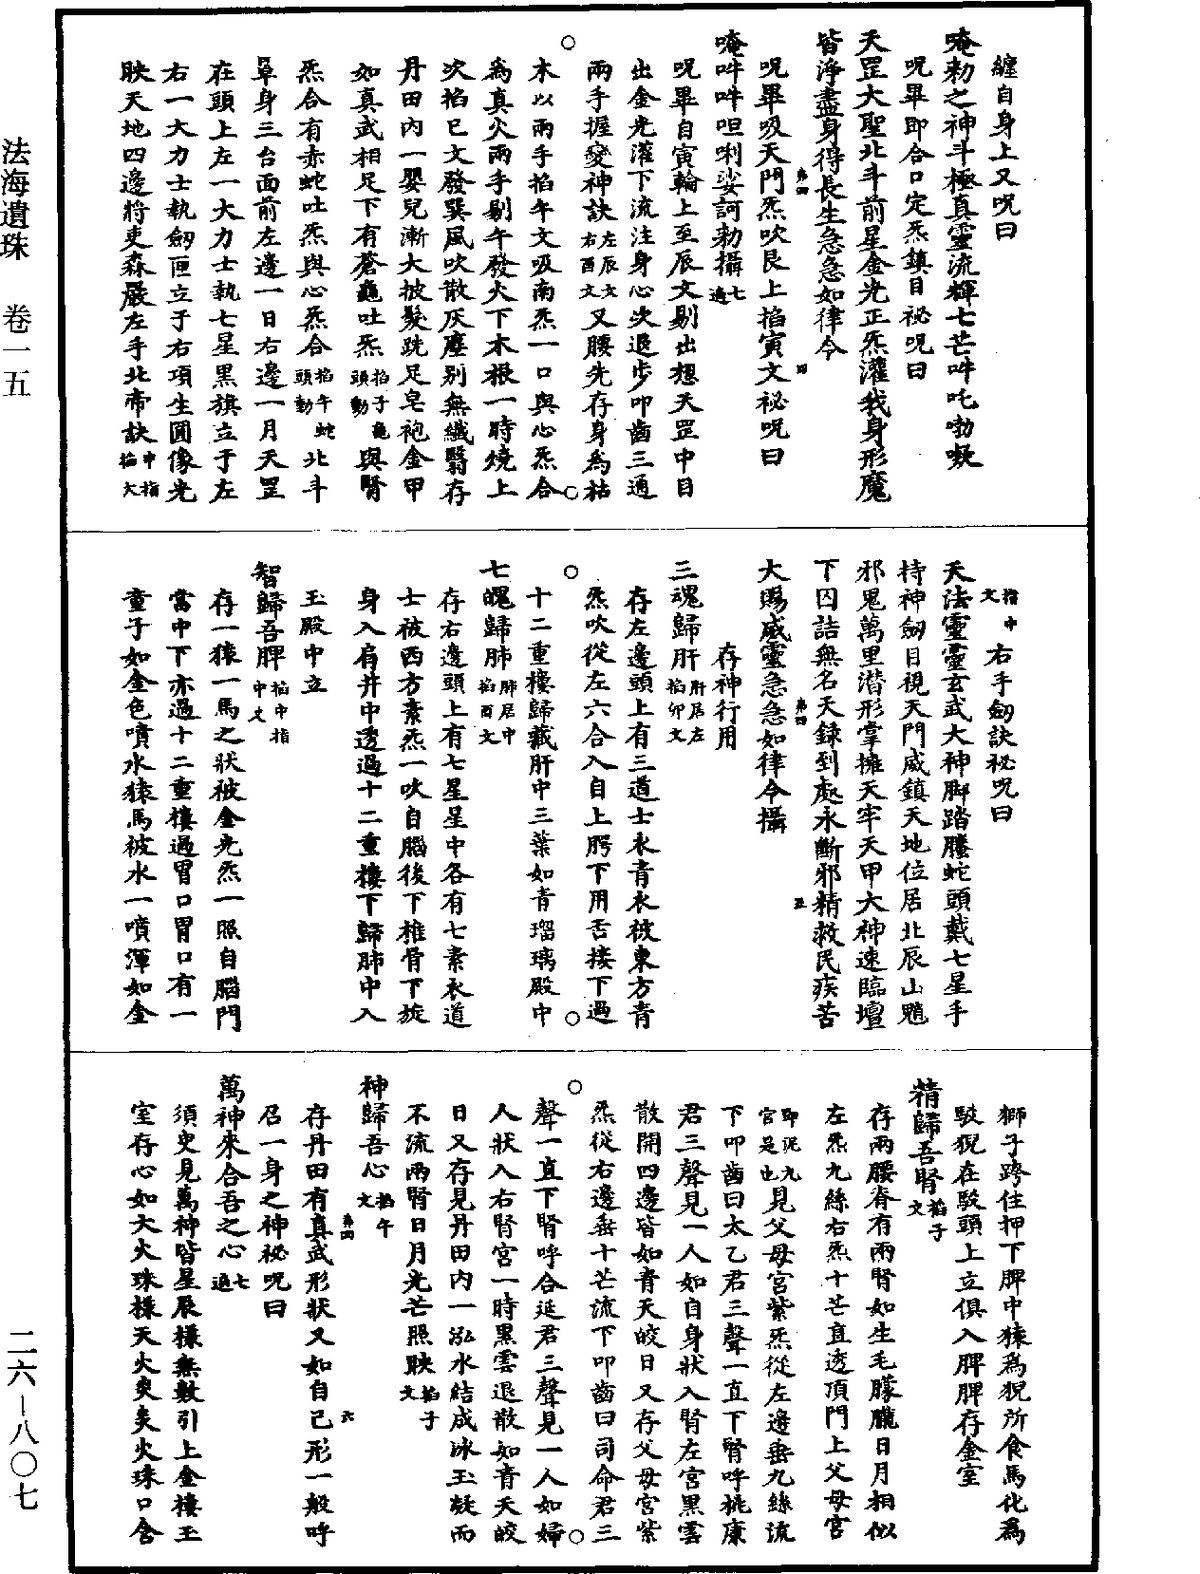 纏自身上又呪曰
唵勑之神斗極真靈流輝七芒吽吒㗀㗜
呪畢即合口定炁鎮目祕呪曰
天罡大聖北斗前星金光正炁灌我身形魔
皆淨盡身得長生急急如律令
呪畢吸天門炁吹艮上掐寅文祕呪曰
唵吽吽呾唎娑訶勑攝七遍
呪畢自寅輪上至辰文剔出想天罡中目
出金光灌下流注身心次退步叩齒三通
兩手握變神訣左辰文右酉文又腰先存身為枯
木以兩手掐午文吸南炁一口與心炁合
為真火兩手剔午發火下木根一時燒上
次掐巳文發巽風吹散灰塵别無纖翳存
丹田內一嬰兒漸大披髮跣足皂袍金甲
如真武相足下有蒼龜吐炁掐子龜頭動與腎
炁合有赤蛇吐炁與心炁合掐午蛇頭動北斗
罩身三台面前左邊一日右邊一月天罡
在頭上左一大力士執七星黑旗立于左
右一大力士執劒匣立于右項生圓像光
映天地四邊將吏森嚴左手北帝訣中指掐大
指中文右手劒訣祕呪曰
天法靈靈玄武大神脚踏螣蛇頭戴七星手
持神劒目視天門威鎮天地位居北辰山魈
邪鬼萬里潛形掌擁天牢天甲大神速臨壇
下囚詰無名天錄到處永斷邪精救民疾苦
大賜威靈急急如律令攝
存神行用
三魂歸肝肝居左掐卯文
存左邊頭上有三道士衣青衣被東方青
炁吹從左六合入自上腭下用舌接下過
十二重樓歸藏肝中三葉如青瑠璃殿中
七魄歸肺肺居中掐酉文
存右邊頭上有七星星中各有七素衣道
士被西方素炁一吹自腦後下椎骨下旋
身入肩井中透過十二重樓下歸肺中入
玉殿中立
智歸吾脾掐中指中文
存一猿一馬之狀被金光炁一照自腦門
當中下亦過十二重樓過胃口胃口有一
童子如金色噴水猿馬被水一噴渾如金
獅子跨住押下脾中猿為猊所食馬化為
駿猊在駿頭上立俱入脾脾存金室
精歸吾腎掐子文
存兩腰脊有兩腎如生毛朦朧日月相似
左炁九絲右炁十芒直透頂門上父母宮
即泥九宮是也見父母宮紫炁從左邊垂九絲流
下叩齒曰太乙君三聲一直下腎呼桃康
君三聲見一人如自身狀入腎左宮黑雲
散開四邊皆如青天皎日又存父母宮紫
炁從右邊垂十芒流下叩齒曰司命君三
聲一直下腎呼合延君三聲見一人如婦
人狀入右腎宮一時黑雲退散如青天皎
日又存見丹田內一泓水結成冰玉凝而
不流兩腎日月光芒照映掐子文
神歸吾心掐午文
存丹田有真武形狀又如自己形一般呼
召一身之神祕呪曰
萬神來合吾之心七遍
須臾見萬神皆星辰樣無數引上金樓玉
室存心如大火珠樣天火炎炎火珠口含
法海遺珠 卷一五
二六—八〇七